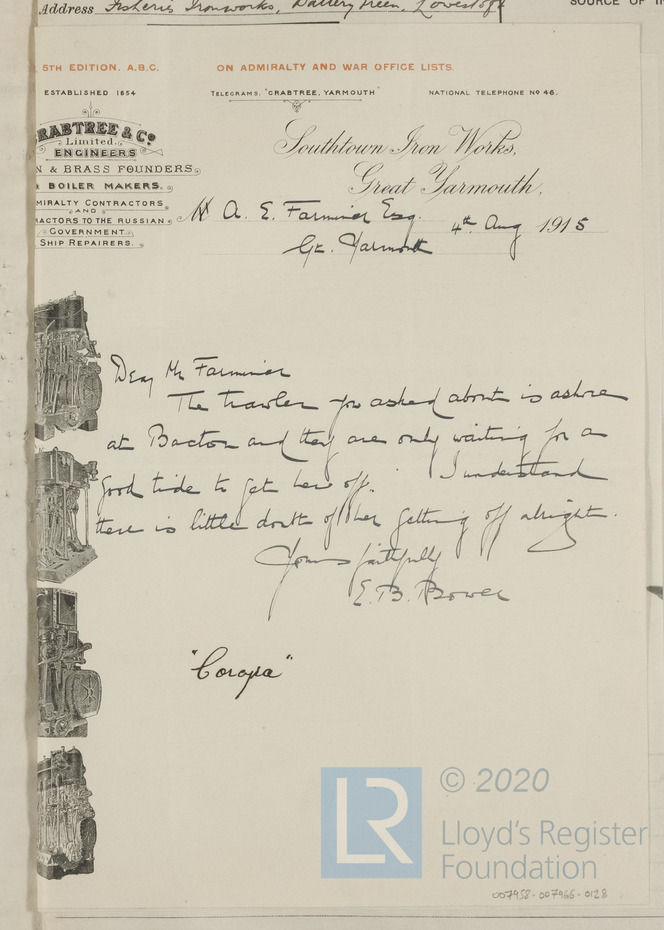 Address Fisher's Ironworks, Battery Green, Lowestoft
SOURCE OF
5TH EDITION. A.B.C.
ON ADMIRALTY AND WAR OFFICE LISTS.
ESTABLISHED 1854
TELEGRAMS, "CRABTREE, YARMOUTH"
NATIONAL TELEPHONE No 46.
RABTREE & Co
Limited.
ENGINEERS
N & BRASS FOUNDERS
BOILER MAKERS.
MIRALTY CONTRACTORS
AND
RACTORS TO THE RUSSIAN
GOVERNMENT
SHIP REPAIRERS.
Southtown Iron Works,
Great Yarmouth.
A. E. Farminer Esq.
Gt. Yarmouth
4th Aug 1915
Dear Mr Farminer
The trawler you asked about is ashore
at Bacton and they are only waiting for a
good tide to get her off. I understand
there is little doubt of her getting off alright.
Yours faithfully
E. B. Bower
"Coropa"
LR
© 2020
Lloyd's Register
Foundation
007958-007966-0128